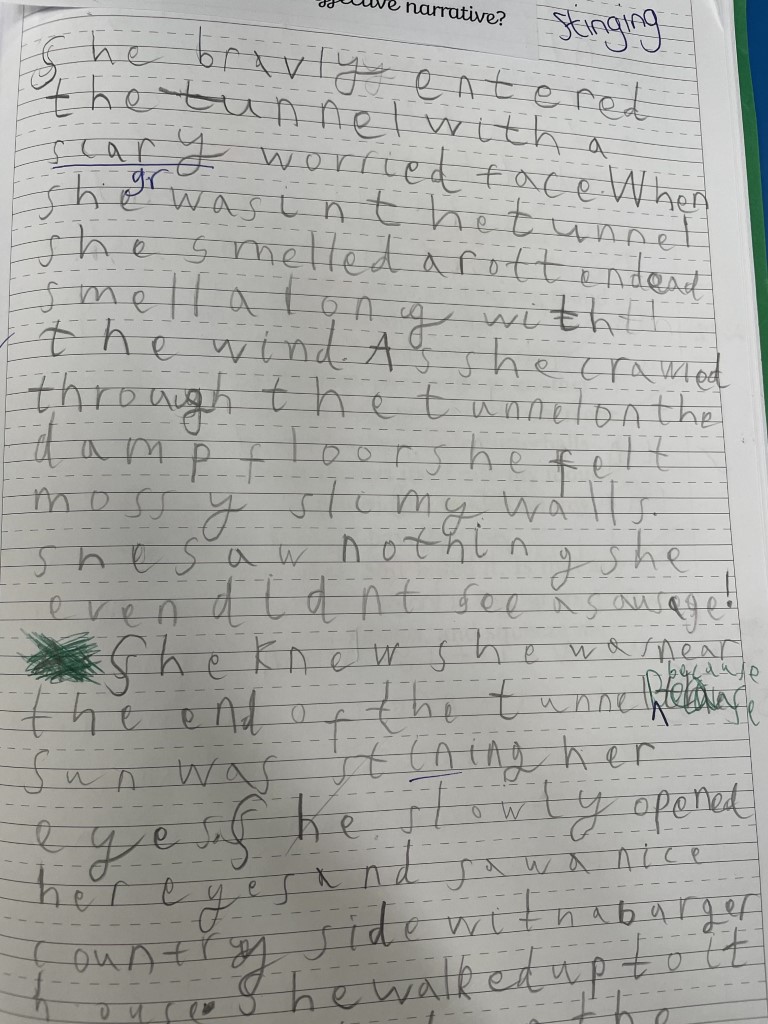 narrative?
stinging
She bravly entered
the tunnel with a
scary worried face. When
gr
she was in the tunnel
she smelled a rotten dead
smell along with
the wind. As she crawled
through the tunnel on the
damp floor she felt
mossy slimy walls.
she saw nothing she
even didnt see a sausage!
She knew she was near
because
the end of the tunnel
sun was stining her
eyes. She slowly opened
her eyes and saw a nice
country side with a burger
house She walked up to it